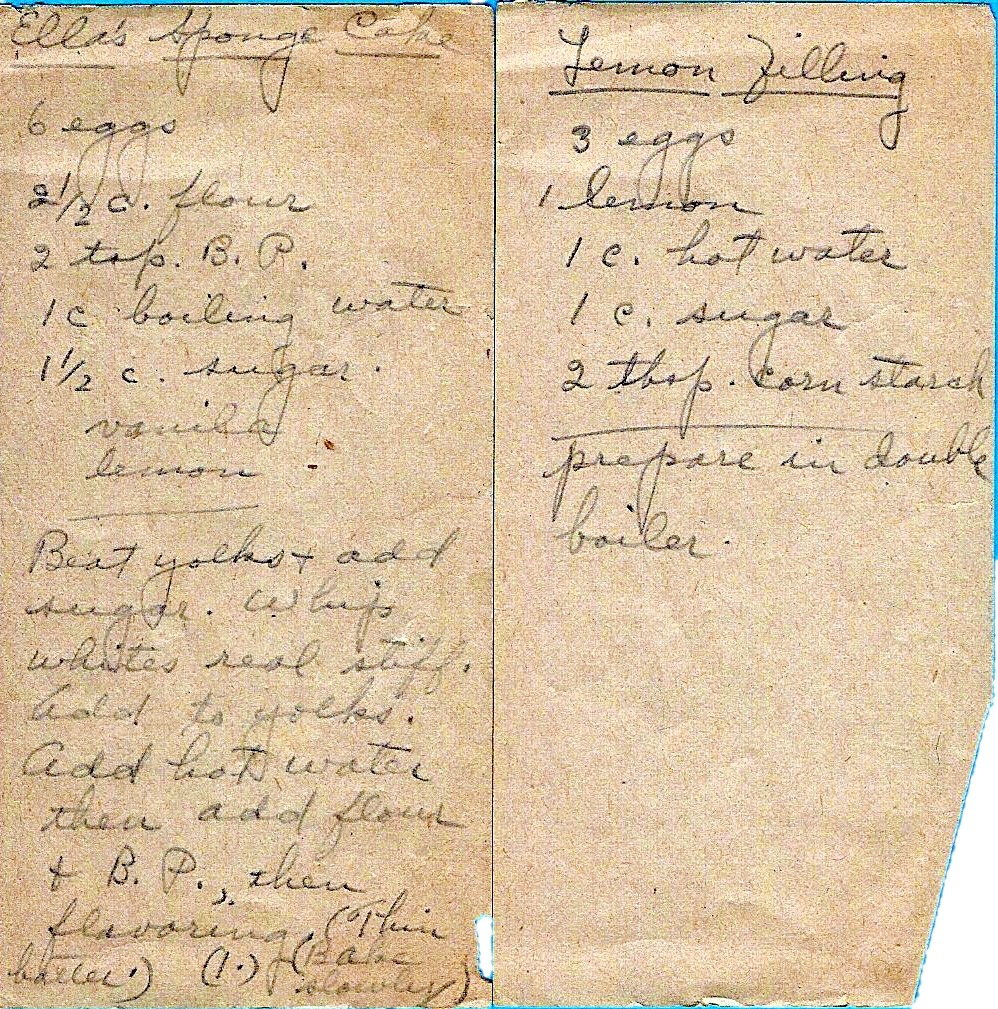 Ella's Sponge Cake
6 eggs
2 1/2 c. flour
2 tsp. B. P.
1 c boiling water
1 1/2 c. sugar.
vanilla
lemon
Beat yolks + add
sugar. Whip
whites real stiff.
Add to yolks.
Add hot water
then add flour
+ B. P., then
flavoring. (Thin
batter.) (1.) (Bake
slowly)
Lemon Filling
3 eggs
1 lemon
1 c. hot water
1 c. sugar
2 tbsp. corn starch
prepare in double
boiler.